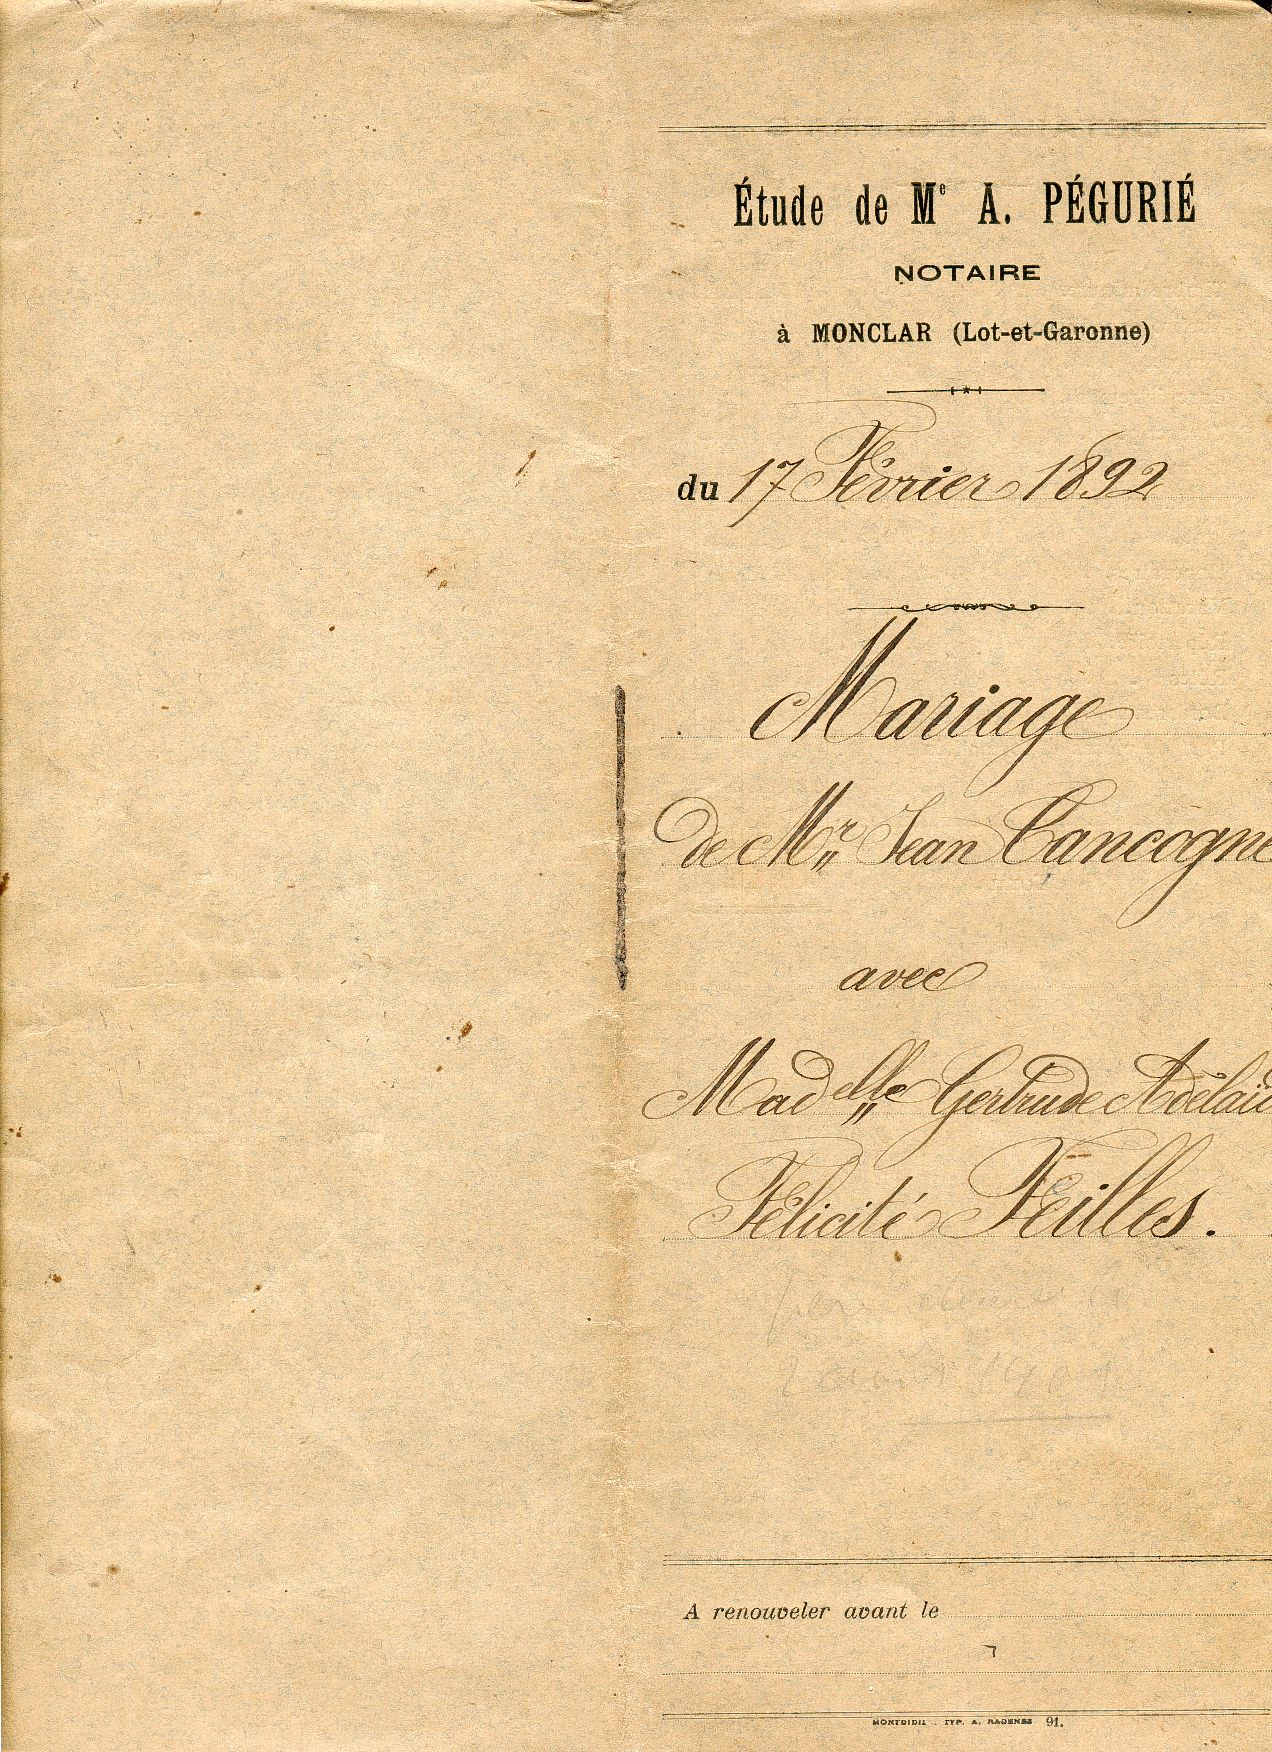 Étude de Me A. PÉGURIÉ
NOTAIRE
à MONCLAR (Lot-et-Garonne)
du 17 Février 1892
Mariage
de Mr Jean Cancogne
avec
Madelle Gertrude Adélaïd
Félicité Feilles.
A renouveler avant le
MONTDIDIE . TYP. A. RADENEZ 91.